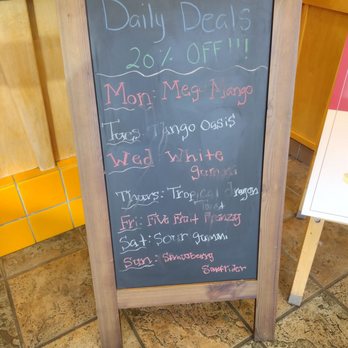 Daily Deals
20% OFF!!!
Mon: Meg Mango
Tues Tango Oasis
Wed White
Gummi
Thurs: Tropical dragon
Fri: Five Fruit Frenzy
Sat: Sour gummi
Sun: Strawberry
Surfrider